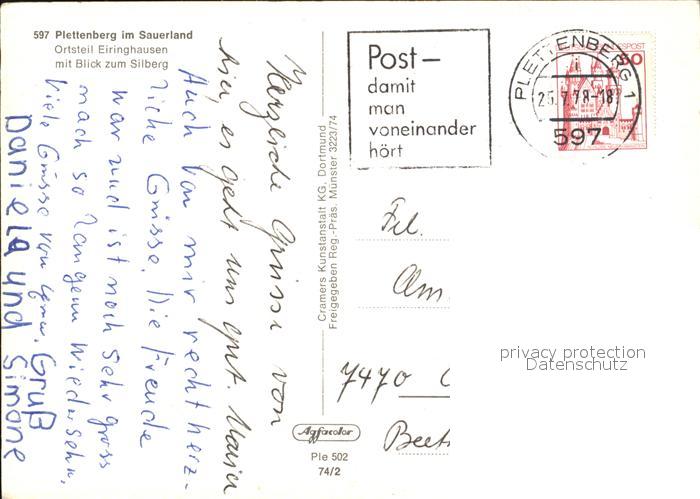 597 Plettenberg im Sauerland
Ortsteil Eiringhausen
mit Blick zum Silberg
Herzliche Grüsse von
hier, es geht uns gut
Auch von mir recht herz-
liche Grüsse. Die Freude
war und ist noch sehr gross
nach so langem Wiedersehn,
Viele Grüsse von
Gruß
Daniela und Simone
Cramers Kunstanstalt KG, Dortmund
Freigegeben Reg.-Präs. Münster 3223/74
Agfacolor
Ple 502
74/2
Post –
damit
man
voneinander
hört
PLETTENBERG 1
25.7.78-18
597
Frl.
Am
7470
Beet
privacy protection
Datenschutz